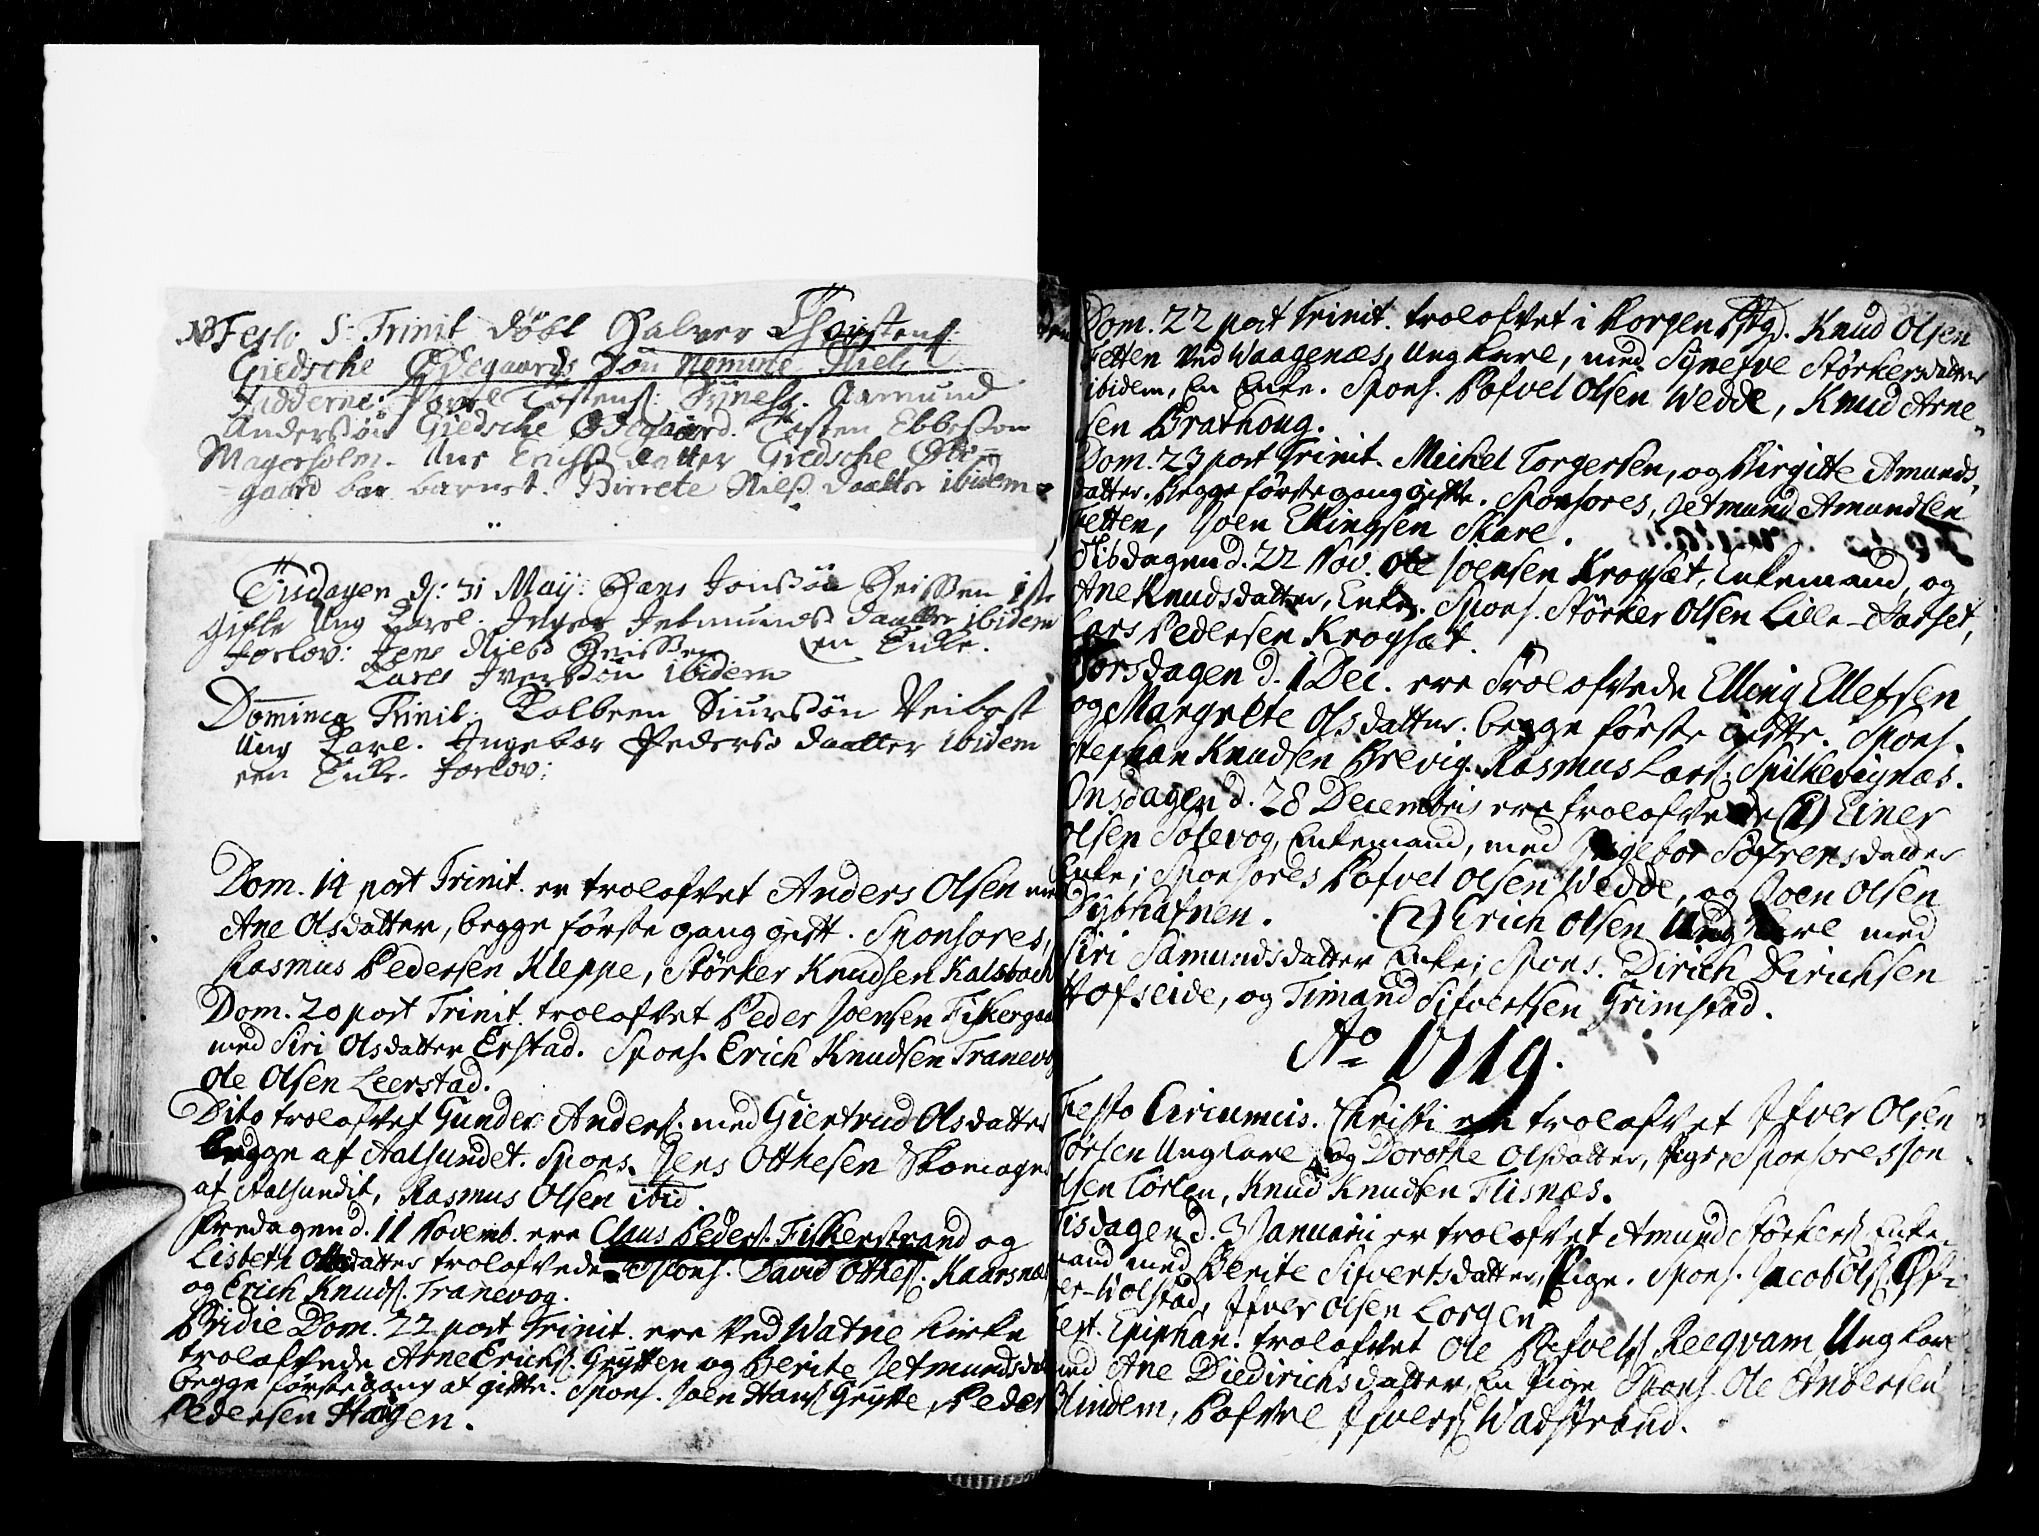 NB Festo S: Trinit døbt Halver Thorstens:
Giedsche Ødegaards Søn Nomine Niels
Fadderne: Povel Tostens: Tuness. Aamund
Anderssøn Giedsche Ødegaard. Tosten Ebbessøn
Magerholm. Ane Erichs daatter Giedsche Øde-
gaard bar barnet. Birrete Nielss daatter ibidem
Tisdagen d: 31 Maij: Hans Jonssøn Heissen
gifte Ung Karl. Inger Jetmunds daatter ibidem
forlov: Jens Nielss Heissen en Encke.
Lares Iverssøn ibidem
Dominica Trinit: Kolbeen Siurssøn Veibust
Ung Karl. Ingebor Pederss daatter ibidem
een Encke. forlov:
Dom. 14 post Trinit. er trolofvet Anders Olsen
Ane Olsdatter, begge første gang gift. Sponsores,
Rasmus Pedersen Kleppe, Størker Knudsen Kalsbach
Dom. 20 post Trinit. trolofvet Peder Joensen
med Siri Olsdatter Erstad. Spons. Erich Knudsen Tranevog
Ole Olsen Leerstad.
Dito trolofvet Gunder Anders. med Giertrud Olsdatter
begge af Aalsundet. Spons. Jens Otthesen Skomager
af Aalsundit, Rasmus Olsen ibid.
Fredagen d. 11 Novemb. ere Claus Peders. Fiskerstrand og
Lisbeth datter trolofvede. Spons. David Othes. Kaarsnæs
og Erich Knuds. Tranevog.
Pridie Dom. 22 post Trinit. ere ved Watne Kircke
trolofvede Arne Erichs. Grytten og Berite Jetmundsdat
begge første gang at gifte. Spons. Joen Hans Grytte, Peder
Pedersen Hagen.
Dom. 22 post Trinit. trolofvet i Borgen Knud Olsen
Fetten ved Waagenæs, Ung karl, med Synefve Størkersdatter
ibidem, En Enke. Spons. Pofvel Olsen Wedde, Knud Arne-
sen Brathoug.
Dom. 23 post Trinit. Michel Torgersen, og Birgitte Amunds-
datter. begge første gang gifte. Sponsores, Jetmund Amundsen
Fetten, Joen Ellingsen Skare.
Tisdagen d. 22 Nov. Ole Joensen Krogsæt, Enkemand, og
Ane Knudsdatter, Enke. Spons. Størker Olsen Lille-Aarset,
Lars Pedersen Krogsæt.
Torsdagen d. 1 Dec. ere Trolofvede Elling Ellefsen
og Margrete Olsdatter. begge første gifte. Spons.
Stephan Knudsen Brevig. Rasmus Lars. Spilkevignæs.
Onsdagen d. 28 Decembris ere trolofvede (1) Einer
Olsen Solevog, Enkemand, med Ingebor Sofrensdatter
Enke; Sponsores Pofvel Olsen Wedde, og Joen Olsen
Dybhafnen. (2) Erich Olsen Ung Karl med
Siri Samundsdatter Enke; Spons. Dirich Dirichsen
Hofseide, og Timand Sifvertsen Grimstad.
Ao 1719.
Festo Circumcis. Christi er trolofvet Ifver Olsen
Torsen Ungkarl, og Dorothe Olsdatter, Pige; Sponsores Jon
Olsen Torsen, Knud Knudsen Flisnæs.
Tisdagen d. 3 Januarii er trolofvet Amund Størkers Enke-
mand med Berite Sifvertsdatter, Pige. Spons. Jacob Ols Øf-
er-Wolstad, Ifver Olsen Lorgen
Fest. Epiphan. trolofvet Ole Pofvels Reeqvam Ung karl
med Ane Diedirichsdatter, En Pige Spons. Ole Andersen
Blindem, Pofvel Ifvers Wadstrand.